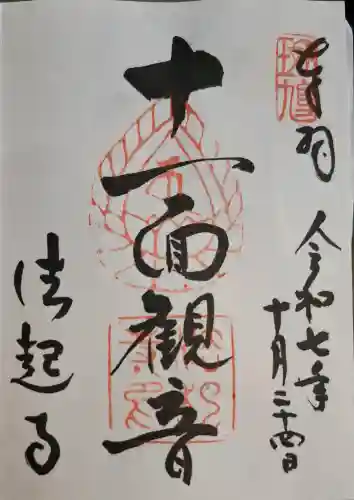 奉拝
令和七年
十月二十四日
十一面観音
法起寺